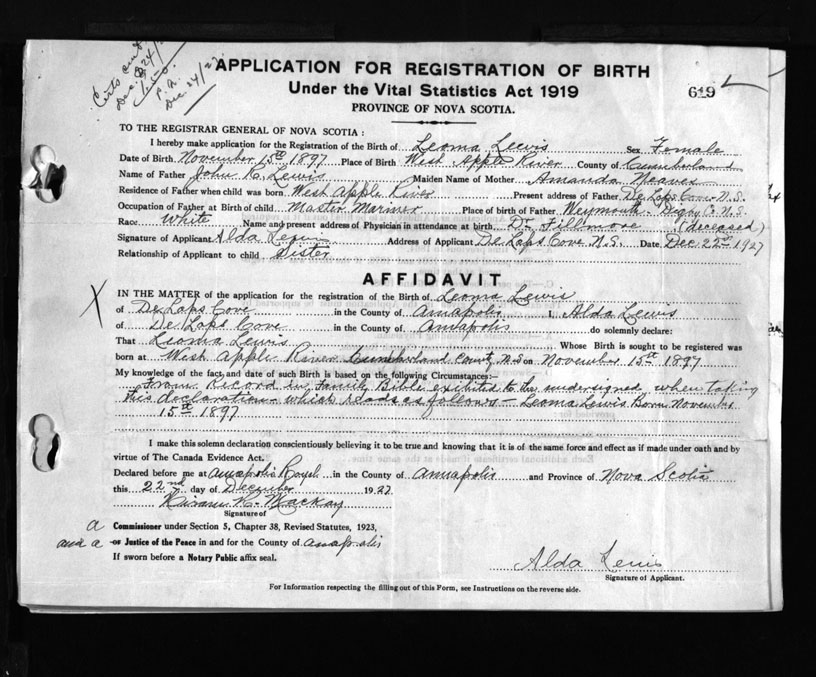 Certs
Dec. 24/
1.50.
Dec. 24/27
APPLICATION FOR REGISTRATION OF BIRTH
Under the Vital Statistics Act 1919
619
PROVINCE OF NOVA SCOTIA.
TO THE REGISTRAR GENERAL OF NOVA SCOTIA:
I hereby make application for the Registration of the Birth of Leoma Lewis Sex Female
Date of Birth November 15th 1897 Place of Birth West Apple River County of Cumberland
Name of Father John Lewis Maiden Name of Mother Amanda
Residence of Father when child was born West Apple River Present address of Father De Laps Cove N.S.
Occupation of Father at Birth of child Master Mariner Place of birth of Father Weymouth Digby Co N.S.
Race White Name and present address of Physician in attendance at birth Dr. Fillmore (deceased)
Signature of Applicant Alda Lewis Address of Applicant De Laps Cove N.S. Date Dec 22nd 1927
Relationship of Applicant to child Sister
AFFIDAVIT
X
IN THE MATTER of the application for the registration of the Birth of Leoma Lewis
of De Laps Cove in the County of Annapolis I, Alda Lewis
of De Laps Cove in the County of Annapolis do solemnly declare:
That Leoma Lewis Whose Birth is sought to be registered was
born at West Apple River Cumberland County N.S on November 15th 1897
My knowledge of the fact and date of such Birth is based on the following Circumstances:—
From Record in Family Bible exibited to the undersigned when taking
this declaration which reads as follows — Leoma Lewis Born November
15th 1897
I make this solemn declaration conscientiously believing it to be true and knowing that it is of the same force and effect as if made under oath and by
virtue of The Canada Evidence Act.
Declared before me at Annapolis Royal in the County of Annapolis and Province of Nova Scotia
this 22nd day of December 1927
Mackay
Signature of
a Commissioner under Section 5, Chapter 38, Revised Statutes, 1923,
and a or Justice of the Peace in and for the County of Annapolis
If sworn before a Notary Public affix seal.
Alda Lewis
Signature of Applicant.
For Information respecting the filling out of this Form, see Instructions on the reverse side.